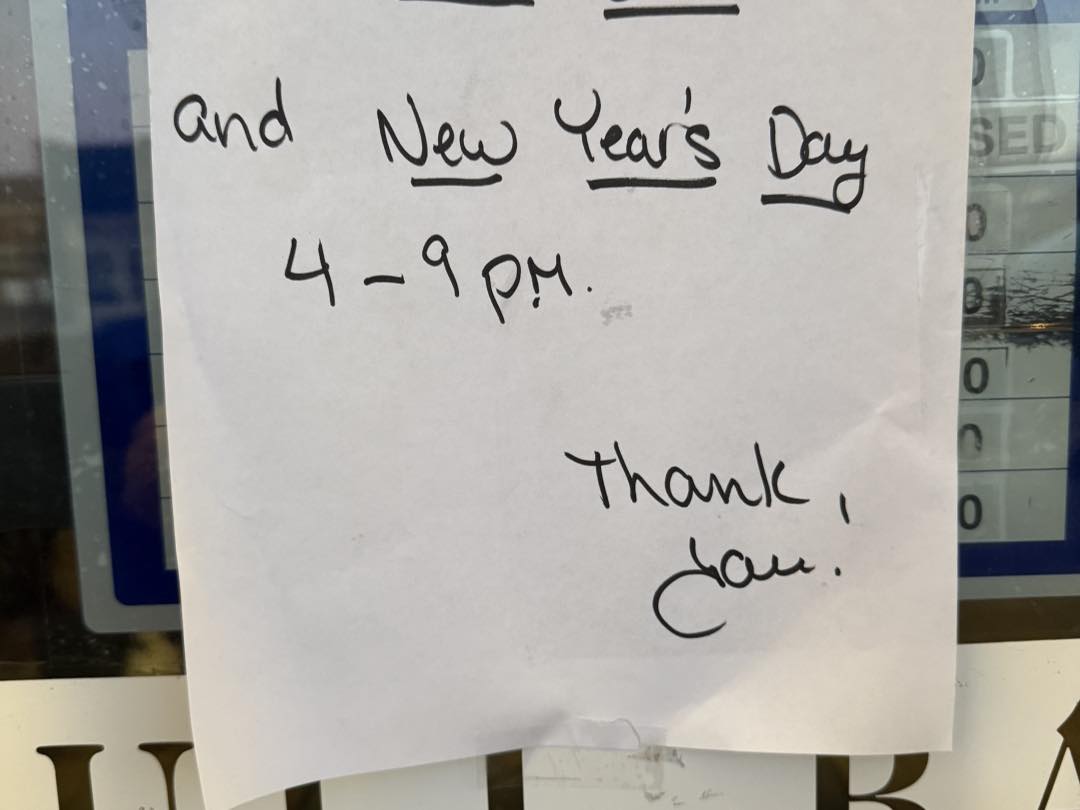 and New Year's Day
4-9 PM.
Thank
you!
SED
0
0
0
0
0